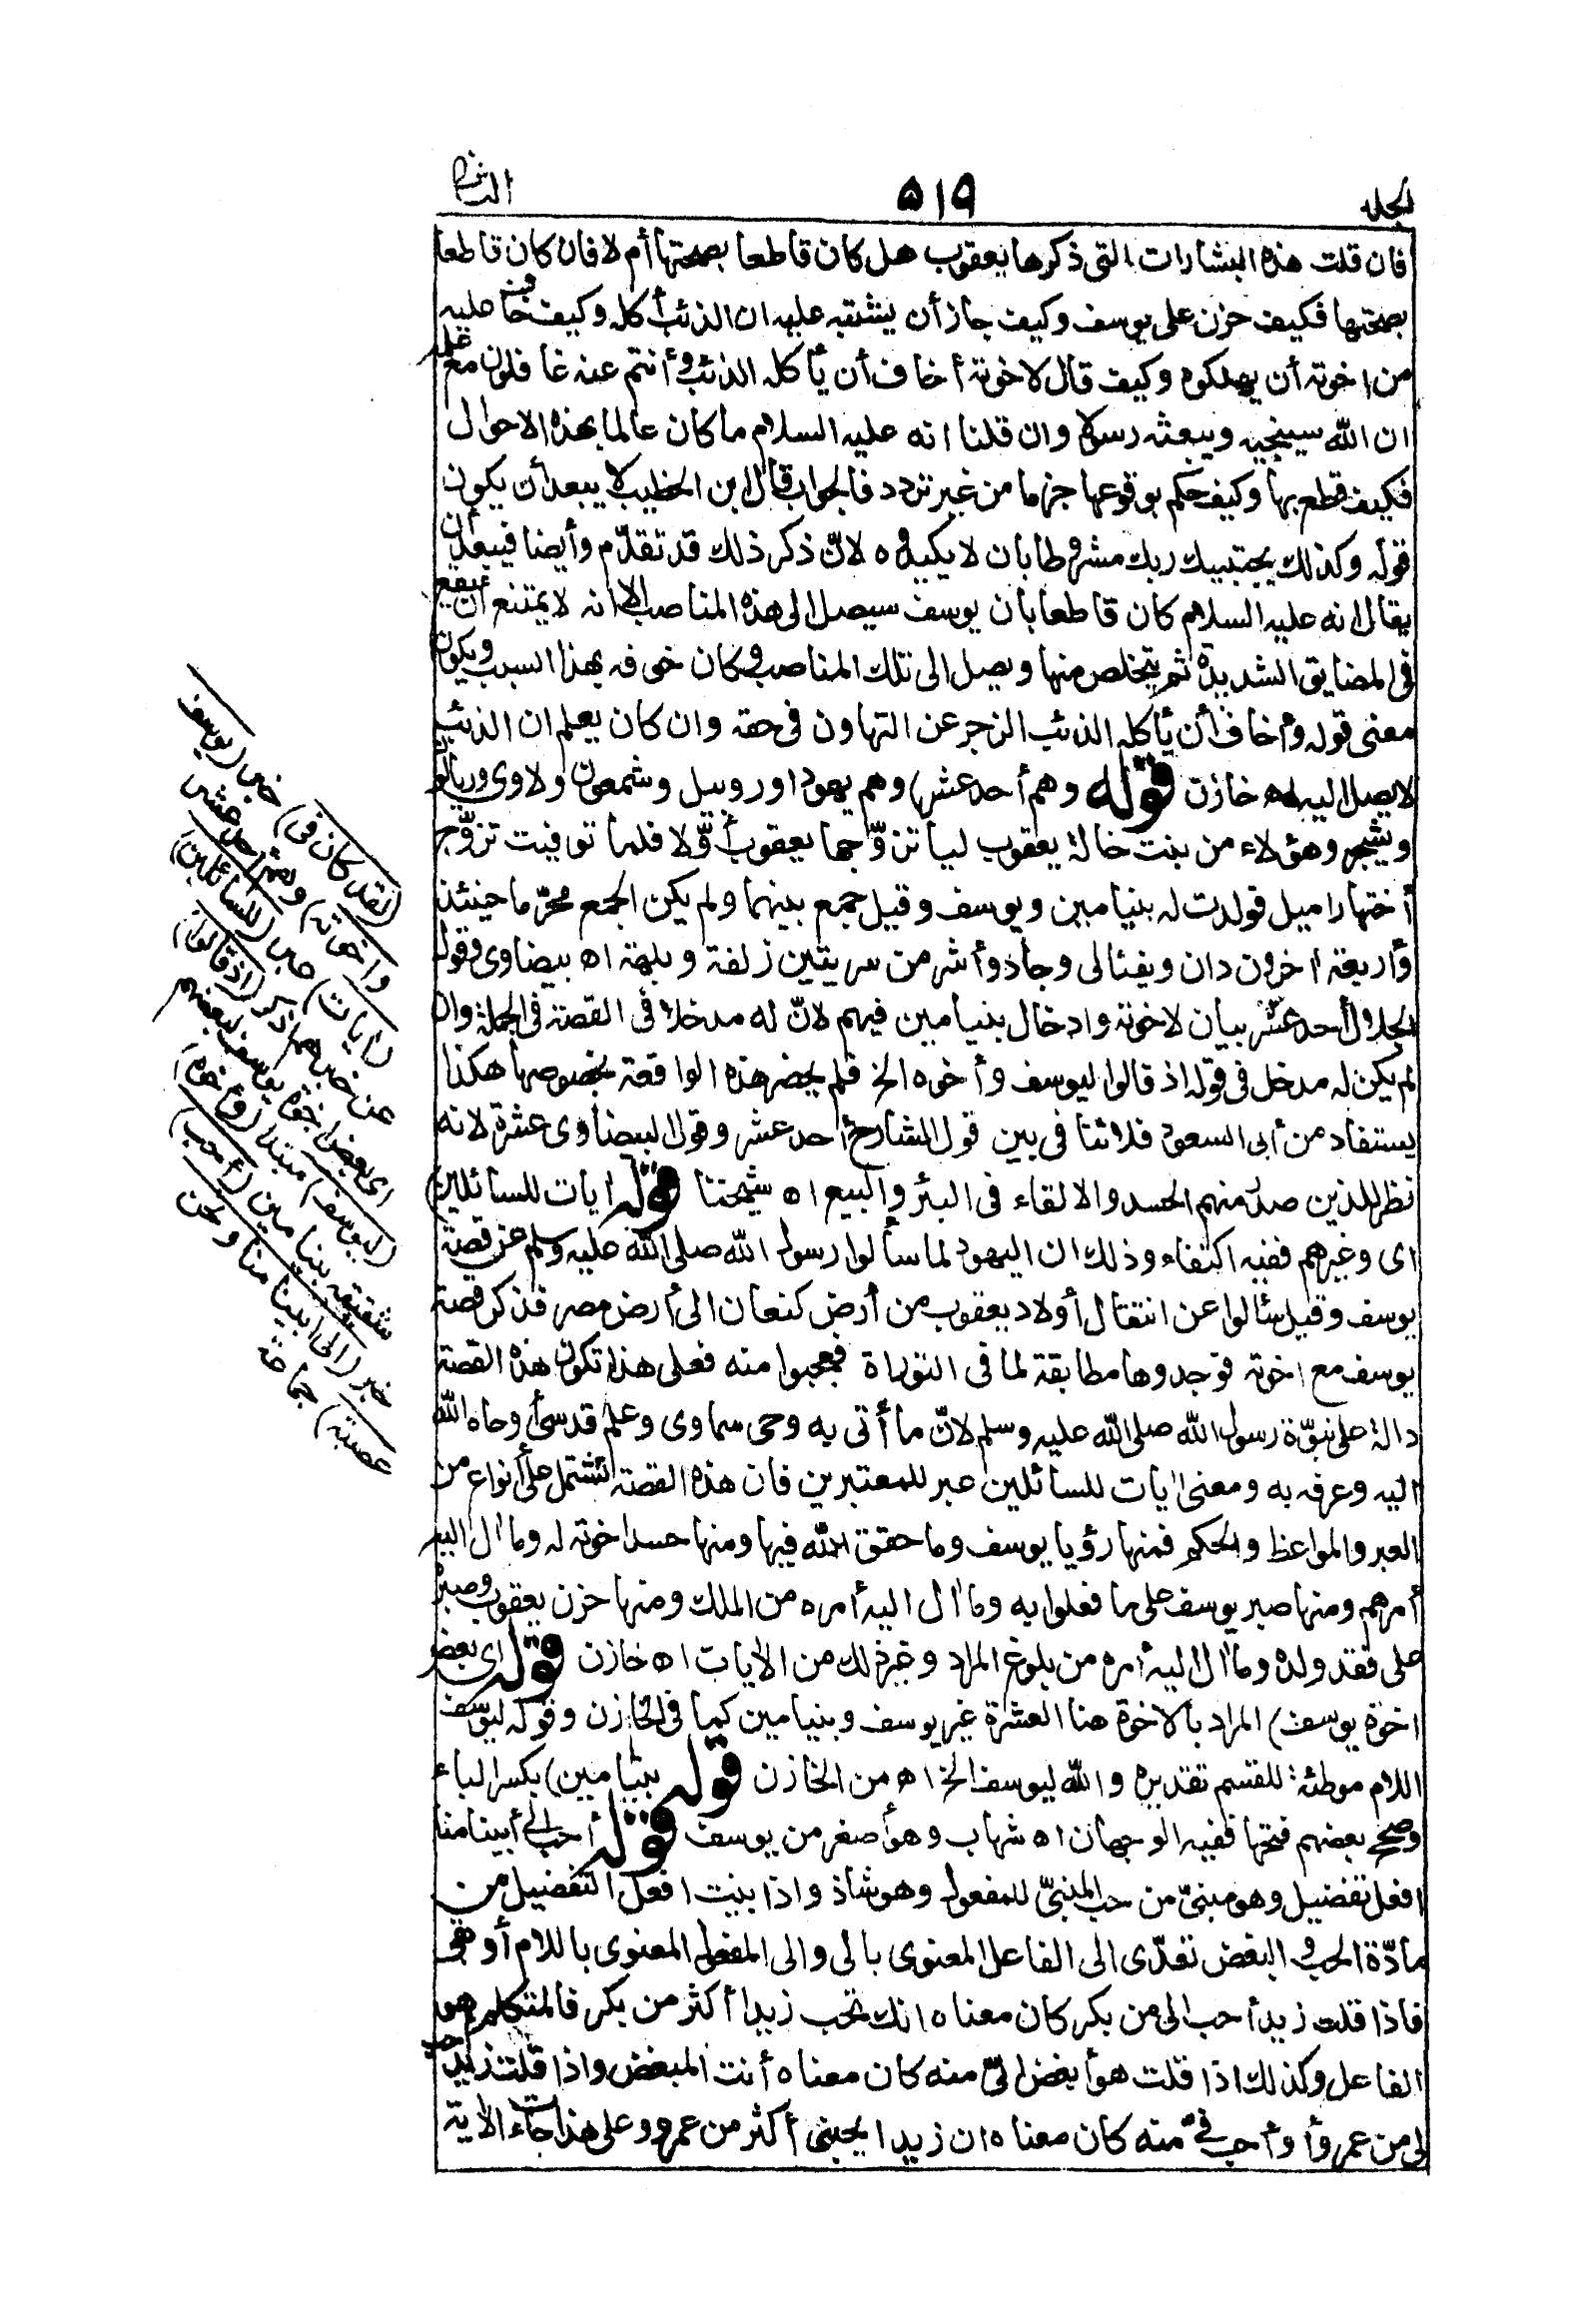 المجلد ٥١٩ الثانى
فان قلت هذه البشارات التى ذكرها يعقوب هل كان قاطعا بصحتها أم لا فان كان قاطعا
بصحتها فكيف حزن على يوسف وكيف جاز أن يشتبه عليه ان الذئب أكله وكيف خاف عليه
من اخوته أن يهلكوه وكيف قال لاخوته أخاف أن يأكله الذئب وأنتم عنه غافلون مع علمه
ان الله سينجيه ويبعثه رسولا وان قلنا انه عليه السلام ما كان عالما بهذه الاحوال
فكيف قطع بها وكيف حكم بوقوعها جزما من غير تردد فالجواب قال ابن الخطيب لا يبعد أن يكون
قوله وكذلك يجتبيك ربك مشروطا بان لا يكيدوه لانّ ذكر ذلك قد تقدّم وأيضا فيبعد أن
يقال انه عليه السلام كان قاطعا بان يوسف سيصل الى هذه المناصب الا انه لا يمتنع أن يقع
فى المضايق الشديدة ثم يتخلص منها ويصل الى تلك المناصب وكان خوفه بهذا السبب ويكون
معنى قوله وأخاف أن يأكله الذئب الزجر عن التهاون فى حقه وان كان يعلم ان الذئب
لا يصل اليه اه خازن قوله وهم أحد عشر) وهم يهودا وروبيل وشمعون ولاوى وريالون
ويشجر وهؤلاء من بنت خالة يعقوب ليا تزوّجها يعقوب أوّلا فلما توفيت تزوّج
أختها راميل فولدت له بنيامين ويوسف وقيل جمع بينهما ولم يكن الجمع محرّما حينئذ
وأربعة اخرون دان ويفثالى وجاد وأشر من سريتين زلفة وبلهة اه بيضاوى وقوله
الجلال أحد عشر بيان لاخوته وادخال بنيامين فيهم لانّ له مدخلا فى القصة فى الجملة وان
لم يكن له مدخل فى قوله اذ قالوا ليوسف وأخوه الخ فلم يحضر هذه الواقعة بخصوصها هكذا
يستفاد من أبى السعود فلا تنافى بين قول الشارح أحد عشر وقول البيضاوى عشرة لانه
نظر للذين صدر منهم الحسد والالقاء فى البئر والبيع اه شيخنا قوله ايات للسائلين)
اى وغيرهم ففيه اكتفاء وذلك ان اليهود لما سألوا رسول الله صلى الله عليه وسلم عن قصة
يوسف وقيل سئالوا عن انتقال أولاد يعقوب من أرض كنعان الى أرض مصر فذكر قصة
يوسف مع اخوته فوجدوها مطابقة لما فى التوراة فعجبوا منه فعلى هذا تكون هذه القصة
دالة على نبوّة رسول الله صلى الله عليه وسلم لانّ ما أتى به وحى سماوى وعلم قدسى أوحاه الله
اليه وعرفه به ومعنى ايات للسائلين عبر للمعتبرين فان هذه القصة تشتمل على أنواع من
العبر والمواعظ والحكم فمنها رؤيا يوسف وما حقق الله فيها ومنها حسد اخوته له وما ال اليه
أمرهم ومنها صبر يوسف على ما فعلوا به وما ال اليه أمره من الملك ومنها حزن يعقوب وصبره
على فقد ولده وما ال اليه أمره من بلوغ المراد وغير ذلك من الايات اه خازن قوله اى بعض
اخوة يوسف) المراد بالاخوة هنا العشرة غير يوسف وبنيامين كما فى الخازن وقوله ليوسف
اللام موطئة للقسم تقديره والله ليوسف الخ اه من الخازن قوله بنيامين) بكسر الباء
وصحح بعضهم فتحها ففيه الوجهان اه شهاب وهو أصغر من يوسف قوله أحب الى أبينا منا
افعل تفضيل وهو مبنىّ من حب المبنىّ للمفعول وهو شاذ واذا بنيت افعل التفضيل من
مادّة الحب والبغض تعدّى الى الفاعل المعنوى بالى والى المفعول المعنوى باللام أو بفى
فاذا قلت زيد أحب الى من بكر كان معناه انك تحب زيدا أكثر من بكر فالمتكلم هو
الفاعل وكذلك اذا قلت هو أبغض الىّ منه كان معناه أنت المبغض واذا قلت زيد أحب
لى من عمرو أو أحب فىّ منه كان معناه ان زيدا يحبنى أكثر من عمرو وعلى هذا جاءت الاية
(لقد كان فى) خبر (يوسف
واخوته) وهم أحد عشر
(ايات) عبر (للسائلين)
عن خبرهم اذكر (اذ قالوا)
اى بعض اخوة يوسف لبعضهم
(ليوسف) مبتدا (وأخوه)
شقيقه بنيامين (أحب)
خبر (الى أبينا منا ونحن
عصبة) جماعة